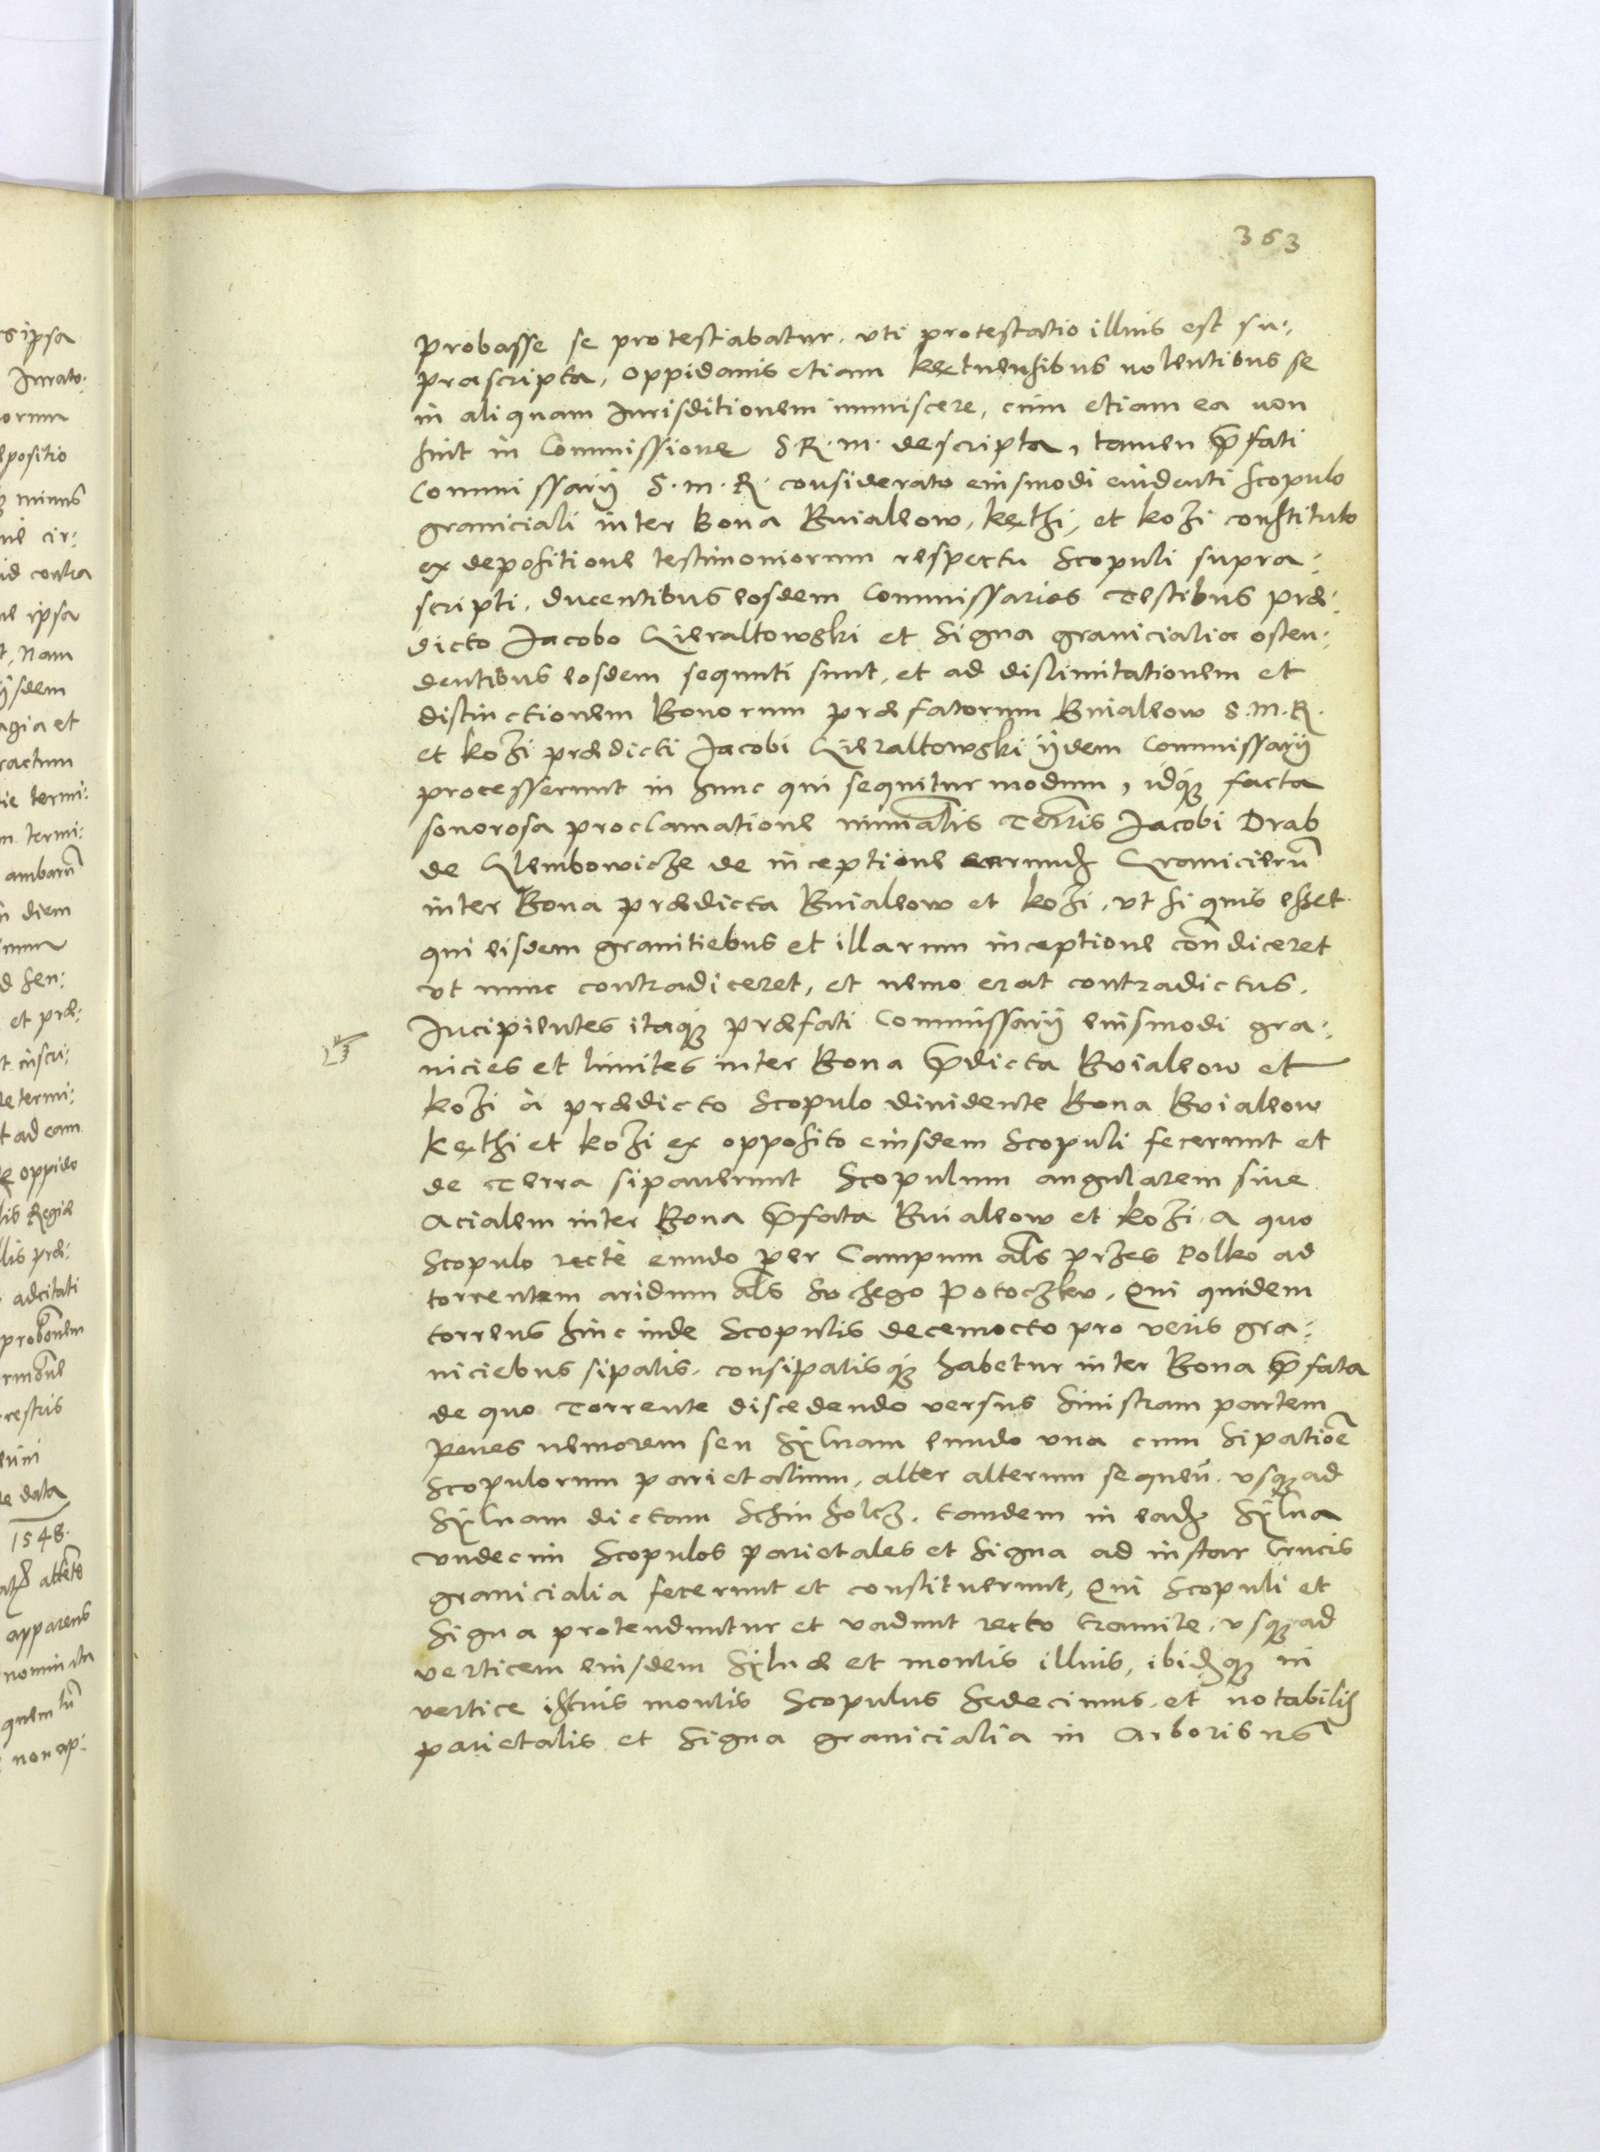 363
probasse se protestabatur. vti protestatio illius est su:
prascripta, oppidanis etiam kęthnensibus nolentibus se
in aliquam Jurisditionem immiscere, cum etiam ea non
sint in Commissione S. R. m. descripta, tamen p̄fati
Commissarij S. m. R. considerato eiusmodi euidenti scopulo
graniciali inter bona Buiakow, kęthi, et kozi constituto
ex depositione testimoniorum respectu Scopuli supra:
scripti, ducentibus eosdem Commissarios Testibus præ:
dicto Jacobo Gieraltowski et Signa granicialia osten:
dentibus eosdem sequuti sunt, et ad dislimitationem et
distinctionem Bonorum præfatorum Buiakow S. M. R.
et kozi prædicti Jacobi Gieraltowski ijdem Commissarij
processerunt in hunc qui sequitur modum, idq́ꝫ facta
sonorosa proclamatione minr̄alis Terr̄is Jacobi Drab
de Glembowicze de inceptione earundꝫ Granicierū
inter Bona prædicta Buiakow et kozi, vt si quis esset
qui eisdem granitiebus et illarum inceptione con̄diceret
vt nunc contradiceret, et nemo erat contradictus.
Incipientes itaq́ꝫ præfati Commissarij eiusmodi gra:
nicies et limites inter Bona p̄dicta Buiakow et
kozi à prædicto Scopulo dividente Bona Buiakow
kęthi et kozi ex opposito eiusdem Scopuli fecerunt et
de Terra sipauerunt Scopulum angularem siue
Acialem inter Bona p̄fata Buiakow et kozi. A quo
Scopulo rectè eundo per Campum al̄s przes polko ad
torrentem aridum al̄s Suchego potoczku, Qui quidem
torrens hinc inde Scopulis decemocto pro veris gra:
niciebus sipatis. consipatisq́ꝫ habetur inter Bona p̄fata
de quo Torrente discedendo versus Sinistram partem
penes nemorem seu Sÿluam eundo vna cum Sipatioē
Scopulorum parietalium, alter alterum sequen̄. vsqꝫ ad
Sÿluam dictam Schinholcz. tandem in eadꝫ Sÿlua
vndecim Scopulos parietales et Signa ad instar Crucis
granicialia fecerunt et constituerunt, Qui Scopuli et
Signa protenduntur et vadunt recto tramite, vsqꝫ ad
verticem eiusdem Sÿluæ et montis illius, ibidꝫqꝫ in
vertice istius montis Scopulus Sedecimus. et notabilis
parietalis et Signa granicialia in Arboribus